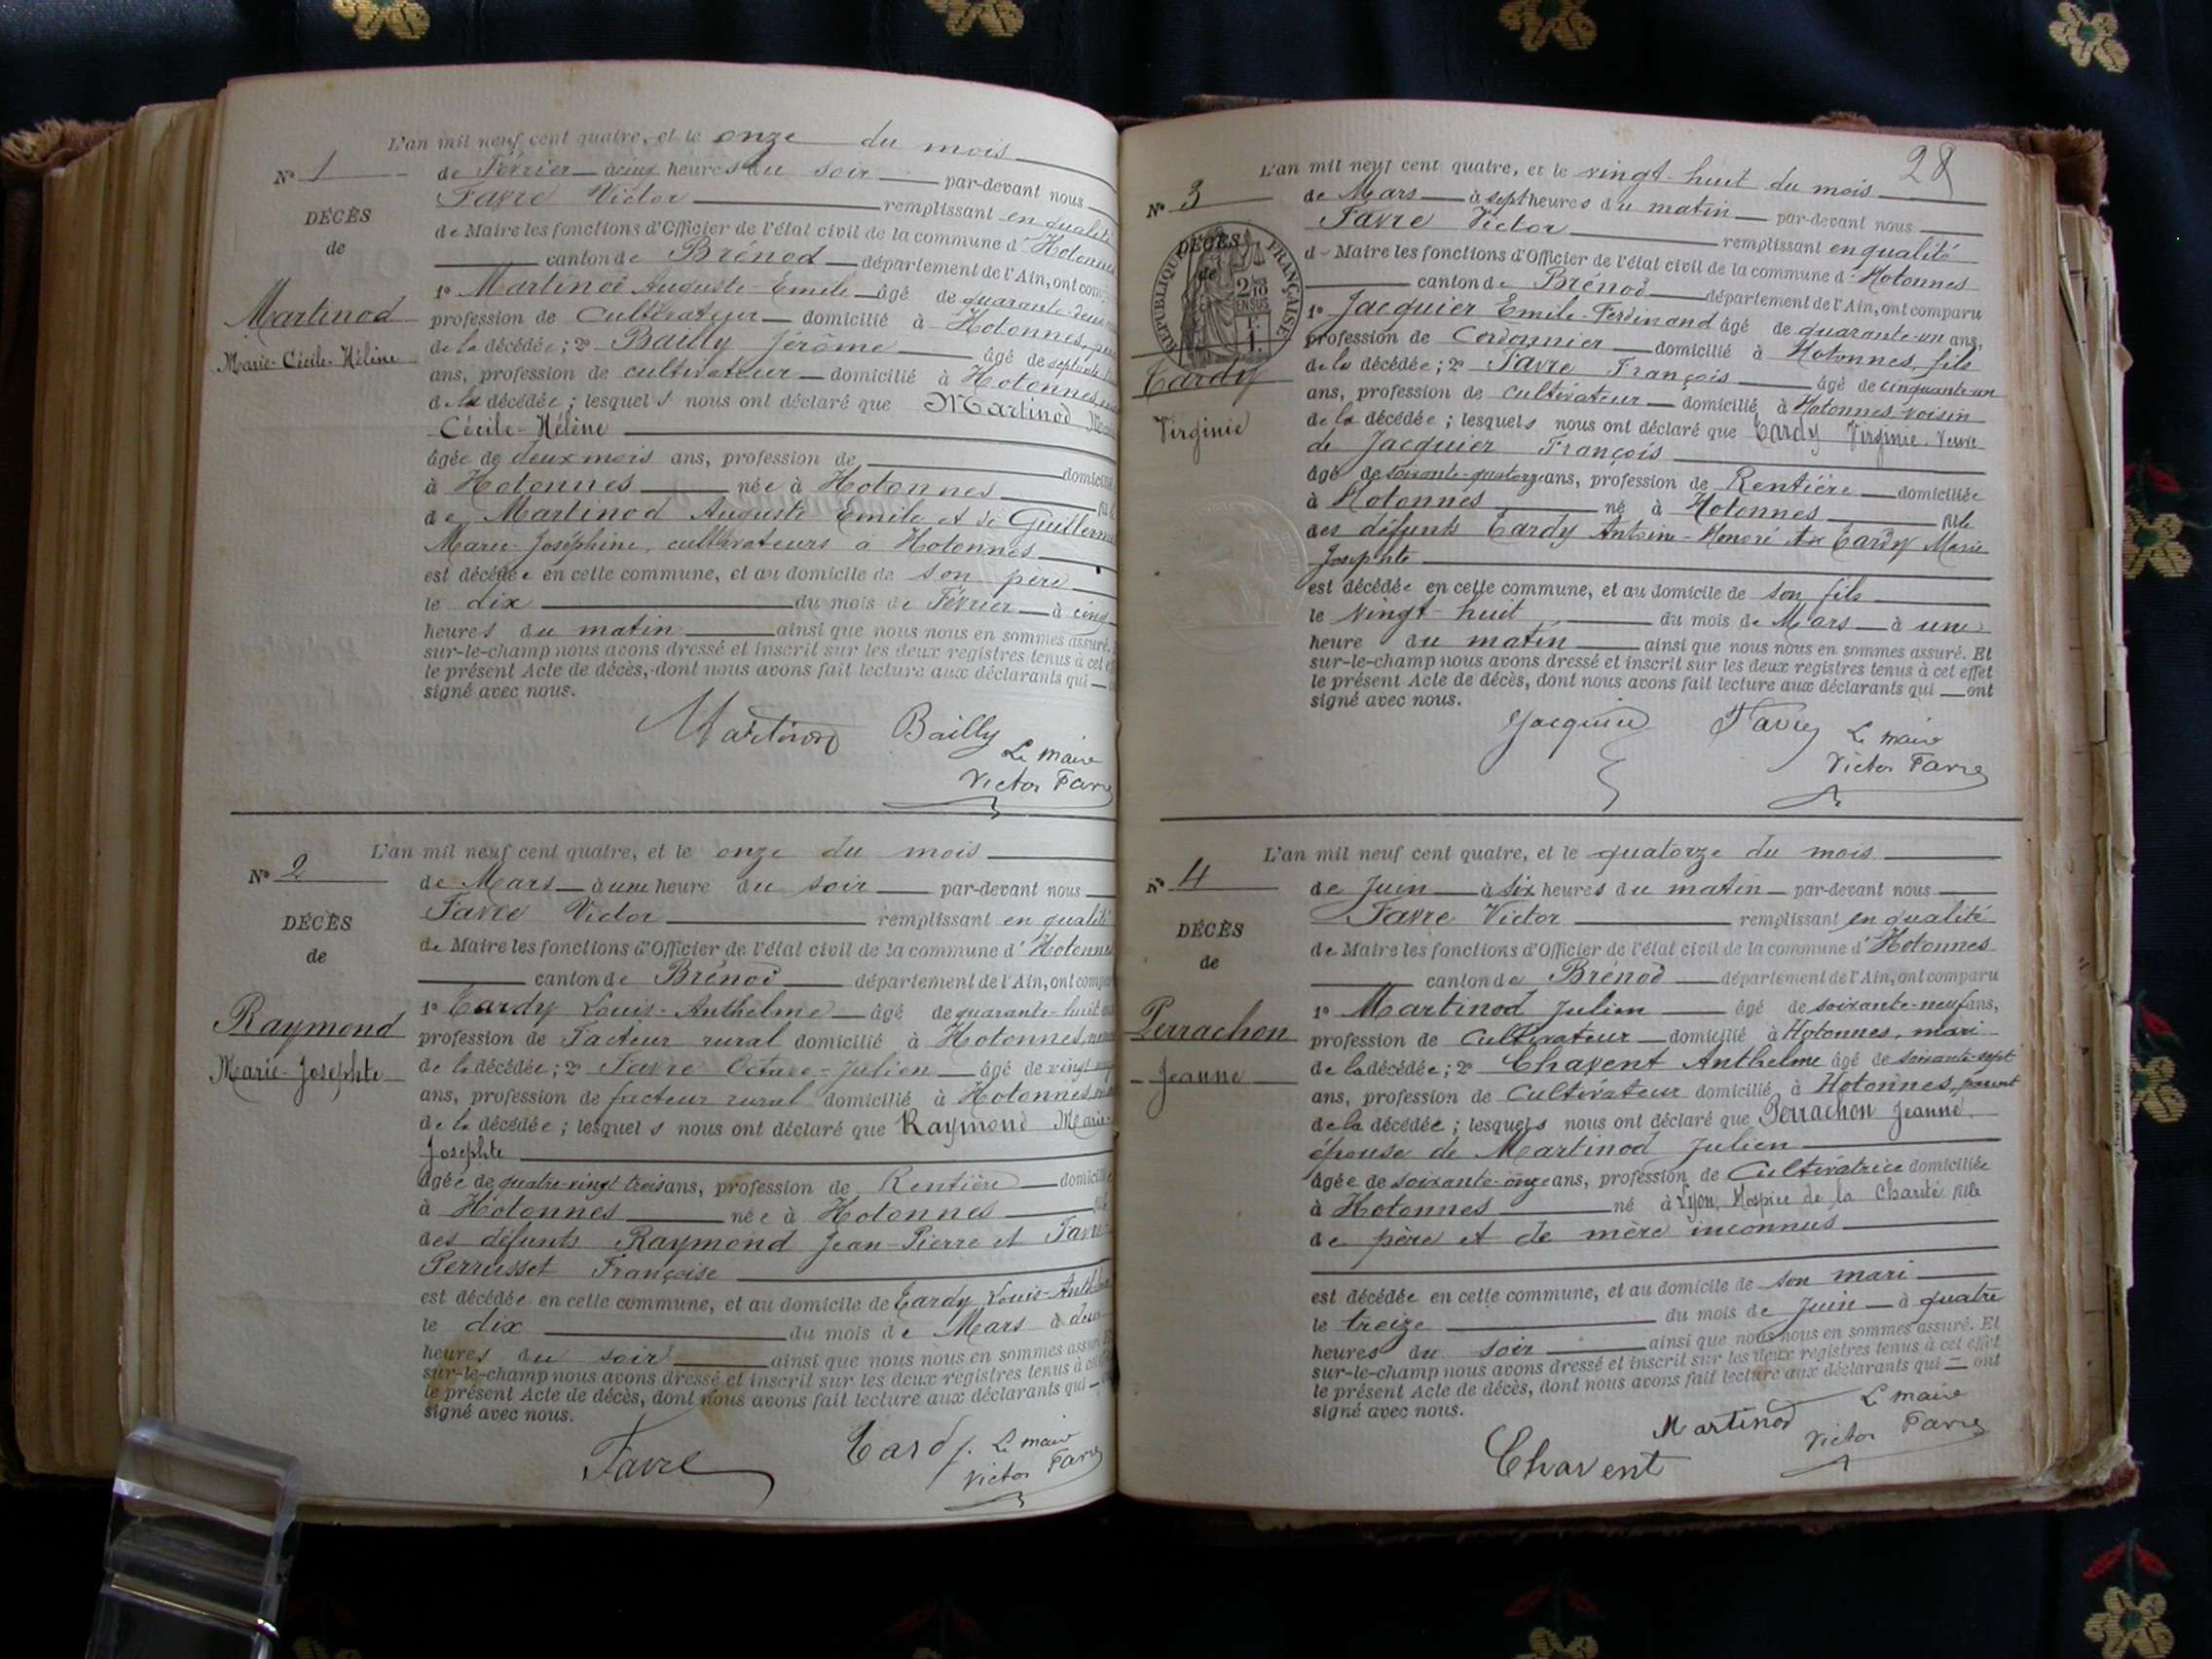 L'an mil neuf cent quatre, et le onze du mois
N° 1
de Février à deux heures du soir par-devant nous
Favre Victor remplissant en qualité
DÉCÈS
de Maire les fonctions d'Officier de l'état civil de la commune d'Hotonnes
de
canton de Brénod département de l'Ain, ont
1° Martinod Auguste-Emile âgé de quarante-deux
Martinod
profession de Cultivateur domicilié à Hotonnes, père
Marie-Cécile-Hélène
de la décédée; 2° Bailly Jérôme âgé de septante
ans, profession de cultivateur domicilié à Hotonnes
de la décédée; lesquels nous ont déclaré que Martinod
Cécile-Hélène
âgée de deux mois ans, profession de domiciliée
à Hotonnes née à Hotonnes
de Martinod Auguste Emile et de Guillermet
Marie-Joséphine, cultivateurs à Hotonnes
est décédée en cette commune, et au domicile de son père
le dix du mois de Février à cinq
heures du matin ainsi que nous nous en sommes assuré.
sur-le-champ nous avons dressé et inscrit sur les deux registres tenus à cet
le présent Acte de décès, dont nous avons fait lecture aux déclarants qui
signé avec nous.
Martinod Bailly
Le maire
Victor Favre
L'an mil neuf cent quatre, et le onze du mois
N° 2
de Mars à une heure du soir par-devant nous
Favre Victor remplissant en qualité
DÉCÈS
de Maire les fonctions d'Officier de l'état civil de la commune d'Hotonnes
de
canton de Brénod département de l'Ain, ont
1° Tardy Louis-Anthelme âgé de quarante-huit
Raymond
profession de Facteur rural domicilié à Hotonnes,
Marie-Josephte
de la décédée; 2° Favre Octave-Julien âgé de vingt
ans, profession de facteur rural domicilié à Hotonnes,
de la décédée; lesquels nous ont déclaré que Raymond Marie-
Josephte
âgée de quatre-vingt trois ans, profession de Rentière
à Hotonnes née à Hotonnes
des défunts Raymond Jean-Pierre et Favre
Perrusset Françoise
est décédée en cette commune, et au domicile de Tardy Louis-Anthelme
le dix du mois de Mars à deux
heures du soir ainsi que nous nous en sommes assuré
sur-le-champ nous avons dressé et inscrit sur les deux registres tenus à cet
le présent Acte de décès, dont nous avons fait lecture aux déclarants qui
signé avec nous.
Favre Tardy Le maire
Victor Favre
28
L'an mil neuf cent quatre, et le vingt-huit du mois
N° 3
de Mars à sept heures du matin par-devant nous
Favre Victor remplissant en qualité
DÉCÈS
de
RÉPUBLIQUE FRANÇAISE
de Maire les fonctions d'Officier de l'état civil de la commune d'Hotonnes
canton de Brénod département de l'Ain, ont comparu
1° Jacquier Emile-Ferdinand âgé de quarante-un ans,
profession de Cordonnier domicilié à Hotonnes, fils
Tardy
de la décédée; 2° Favre François âgé de cinquante-un
ans, profession de cultivateur domicilié à Hotonnes voisin
Virginie
de la décédée; lesquels nous ont déclaré que Tardy Virginie, Veuve
de Jacquier François
âgé de soixante-quatorze ans, profession de Rentière domiciliée
à Hotonnes né à Hotonnes fille
des défunts Tardy Antoine-Honoré et de Tardy Marie
Josephte
est décédée en cette commune, et au domicile de son fils
le vingt-huit du mois de Mars à une
heure du matin ainsi que nous nous en sommes assuré. Et
sur-le-champ nous avons dressé et inscrit sur les deux registres tenus à cet effet
le présent Acte de décès, dont nous avons fait lecture aux déclarants qui ont
signé avec nous.
Jacquier Favre Le maire
Victor Favre
L'an mil neuf cent quatre, et le quatorze du mois
N° 4
de Juin à six heures du matin par-devant nous
Favre Victor remplissant en qualité
DÉCÈS
de Maire les fonctions d'Officier de l'état civil de la commune d'Hotonnes
de
canton de Brénod département de l'Ain, ont comparu
1° Martinod Julien âgé de soixante-neuf ans,
Perrachon
profession de Cultivateur domicilié à Hotonnes, mari
Jeanne
de la décédée; 2° Chavent Anthelme âgé de soixante-sept
ans, profession de Cultivateur domicilié à Hotonnes, parent
de la décédée; lesquels nous ont déclaré que Perrachon Jeanne,
épouse de Martinod Julien
âgée de soixante-onze ans, profession de Cultivatrice domiciliée
à Hotonnes né à Lyon, Hospice de la Charité fille
de père et de mère inconnus
est décédée en cette commune, et au domicile de son mari
le treize du mois de Juin à quatre
heures du soir ainsi que nous nous en sommes assuré. Et
sur-le-champ nous avons dressé et inscrit sur les deux registres tenus à cet effet
le présent Acte de décès, dont nous avons fait lecture aux déclarants qui ont
signé avec nous.
Chavent Martinod Le maire
Victor Favre